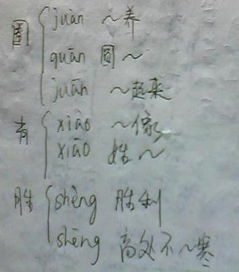 圈 juàn ~养
quān 圆~
juān ~起来
肖 xiào ~像
xiāo 姓~
胜 shèng 胜利
shēng 高处不~寒